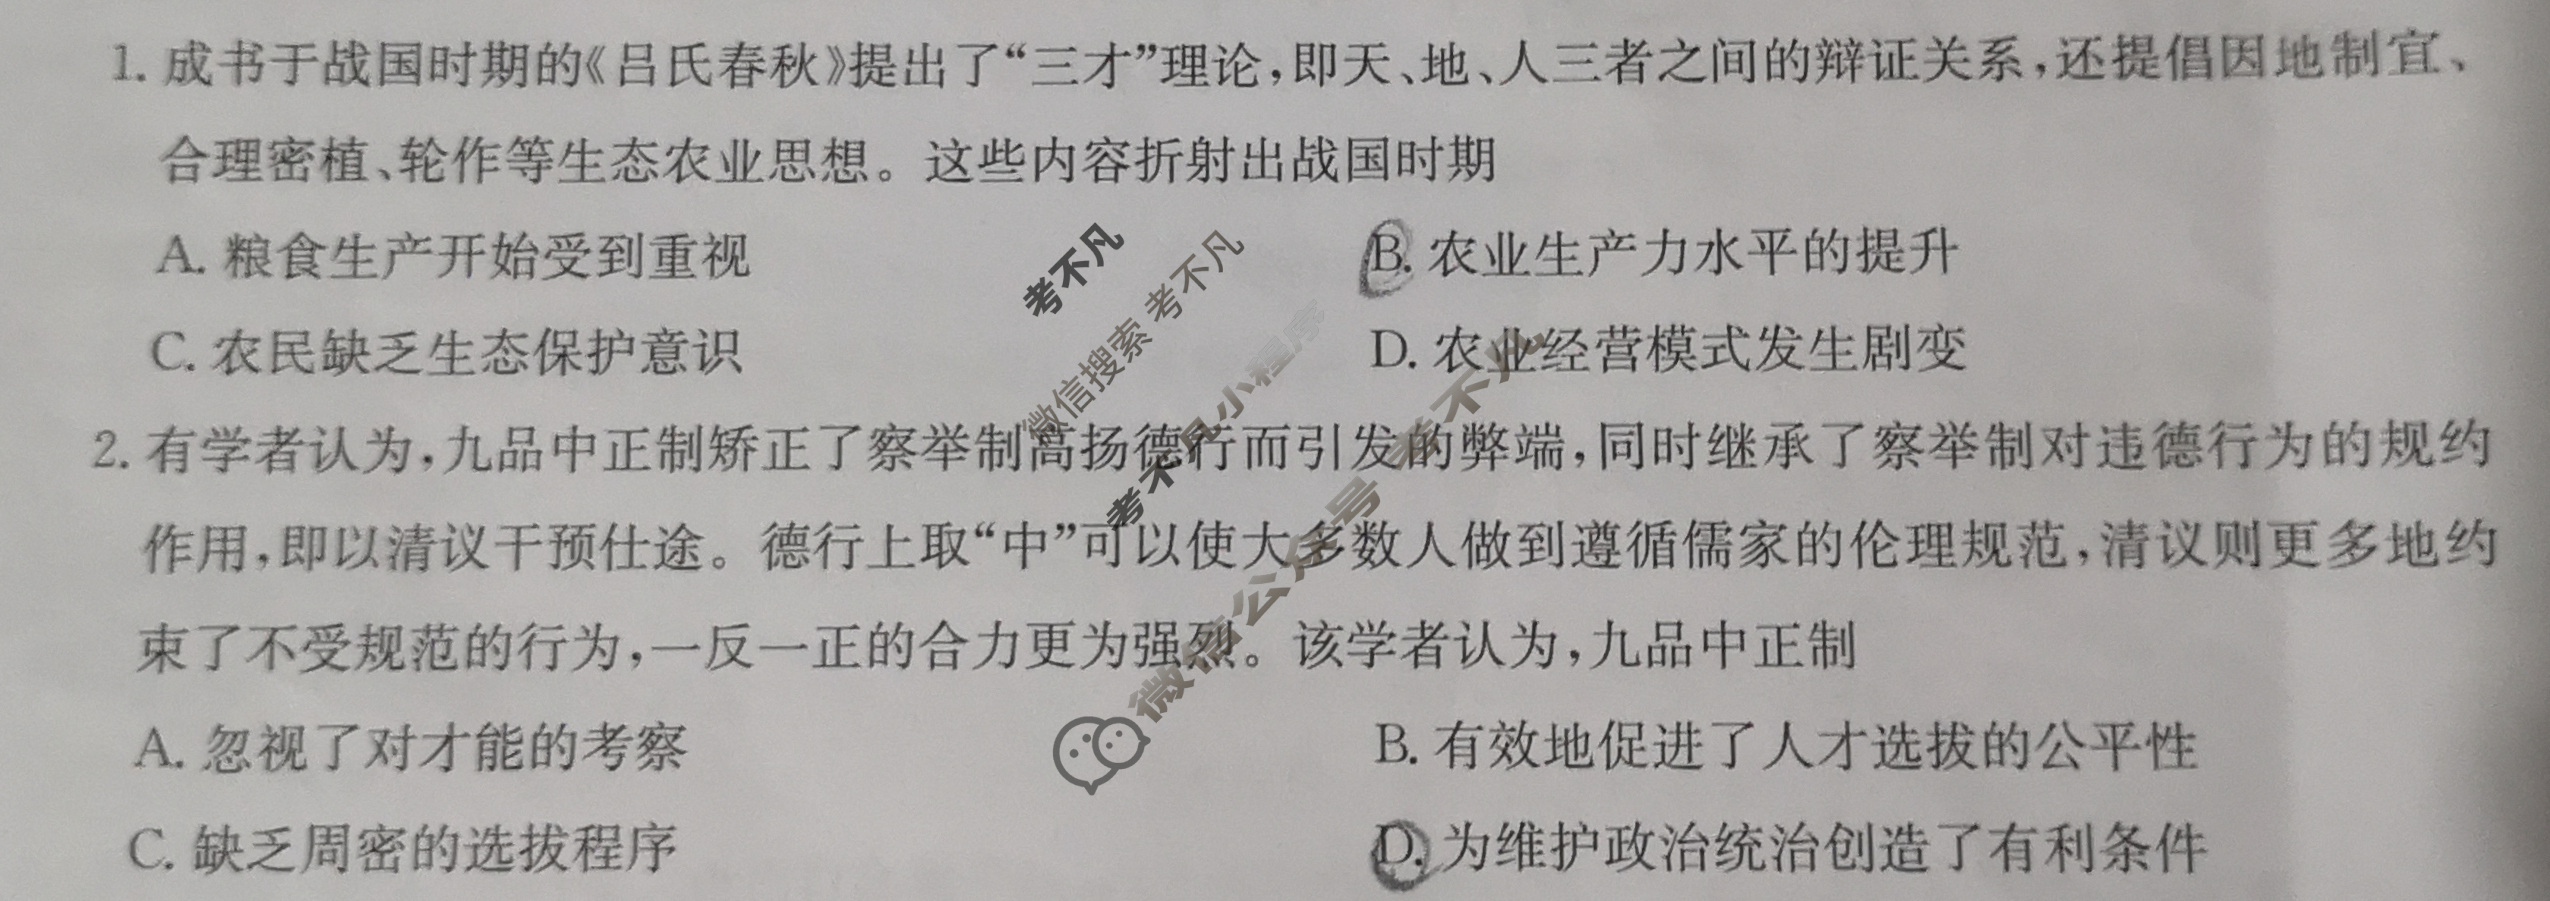 1. 成书于战国时期的《吕氏春秋》提出了“三才”理论,即天、地、人三者之间的辩证关系,还提倡因地制宜、
合理密植、轮作等生态农业思想。这些内容折射出战国时期
A. 粮食生产开始受到重视
B. 农业生产力水平的提升
C. 农民缺乏生态保护意识
D. 农业经营模式发生剧变
2. 有学者认为,九品中正制矫正了察举制高扬德行而引发的弊端,同时继承了察举制对违德行为的规约
作用,即以清议干预仕途。德行上取“中”可以使大多数人做到遵循儒家的伦理规范,清议则更多地约
束了不受规范的行为,一反一正的合力更为强烈。该学者认为,九品中正制
A. 忽视了对才能的考察
B. 有效地促进了人才选拔的公平性
C. 缺乏周密的选拔程序
D. 为维护政治统治创造了有利条件
考不凡
微信搜索 考不凡
考不凡小程序
微信公众号 考不凡